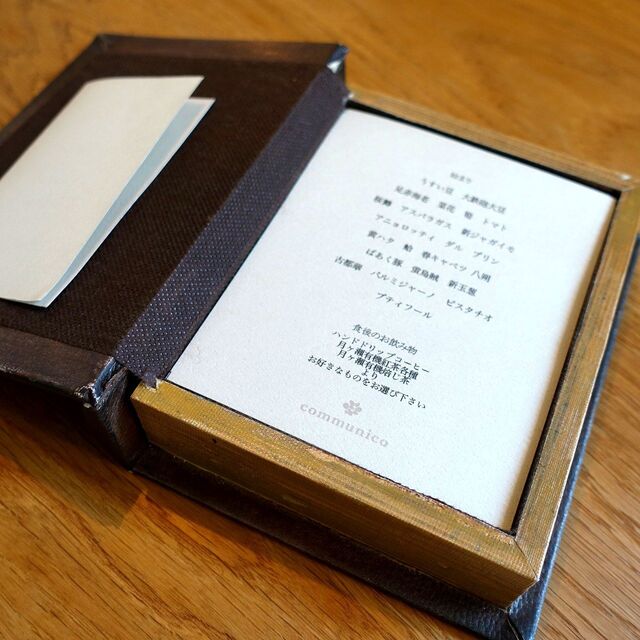 始まり
うすい豆 大鉄砲大豆
足赤海老 菜花 苺 トマト
桜鱒 アスパラガス 新ジャガイモ
アニョロッティ ダル プリン
黄ハタ 蛤 春キャベツ 八朔
ばあく豚 蛍烏賊 新玉葱
古都華 パルミジャーノ ピスタチオ
プティフール
食後のお飲み物
ハンドドリップコーヒー
月ヶ瀬有機紅茶
月ヶ瀬有機焙じ茶
お好きなものをお選び下さい
communico